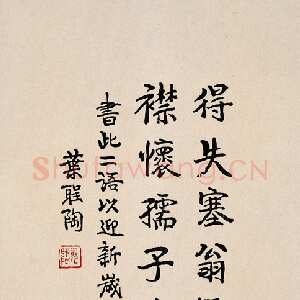 得失塞翁
襟懷孺子
書此二語以迎新歲
葉聖陶